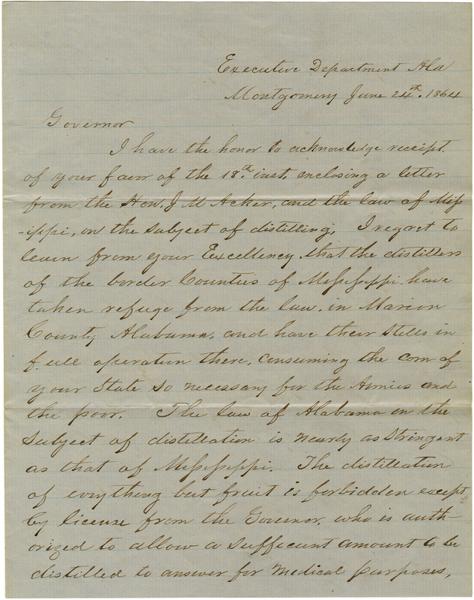 Executive Department Ala
Montgomery June 24th. 1864
Governor
I have the honor to acknowledge receipt
of your favor of the 18th. inst, enclosing a letter
from the Hon. J M Acker, and the law of Miss
-ippi, on the subject of distilling, I regret to
learn from your Excellency, that the distillers
of the border Counties of Mississippi have
taken refuge from the law, in Marion
County Alabama, and have their stills in
full operation there, consuming the corn of
your State so necessary for the Armies and
the poor. The law of Alabama on the
subject of distillation is nearly as stringent
as that of Mississippi. The distillation
of evrything but fruit is forbidden except
by license from the Governor, who is auth-
orized to allow a suffecient amount to be
distilled to answer for medical purposes,